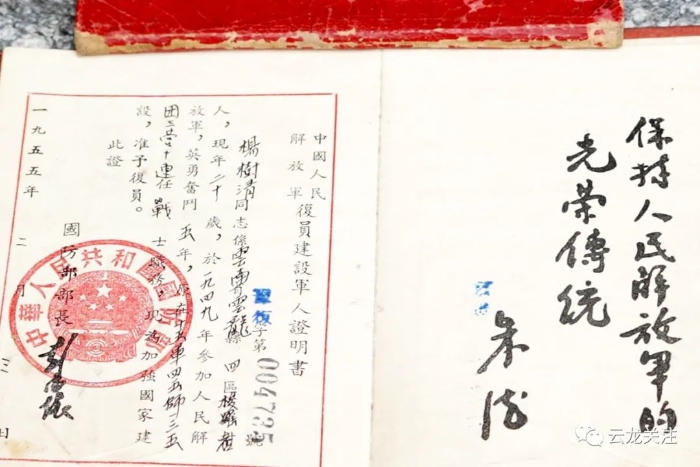 保持人民解放軍的
光荣傳統
朱德
中國人民
解放軍
復員建設軍人證明書
復字第004735號
楊樹清同志係雲南雲龍縣四區
人，現年二十歲，於一九四九年參加人民解
放軍，英勇奮鬥五年，原在十五軍四五師一三五
团三营十連任戰士職務，現為加強國家建
設，准予復員。
此證
國防部部長 彭德懷
一九五五年二月三日
中華人民共和國國防部
云龙关注